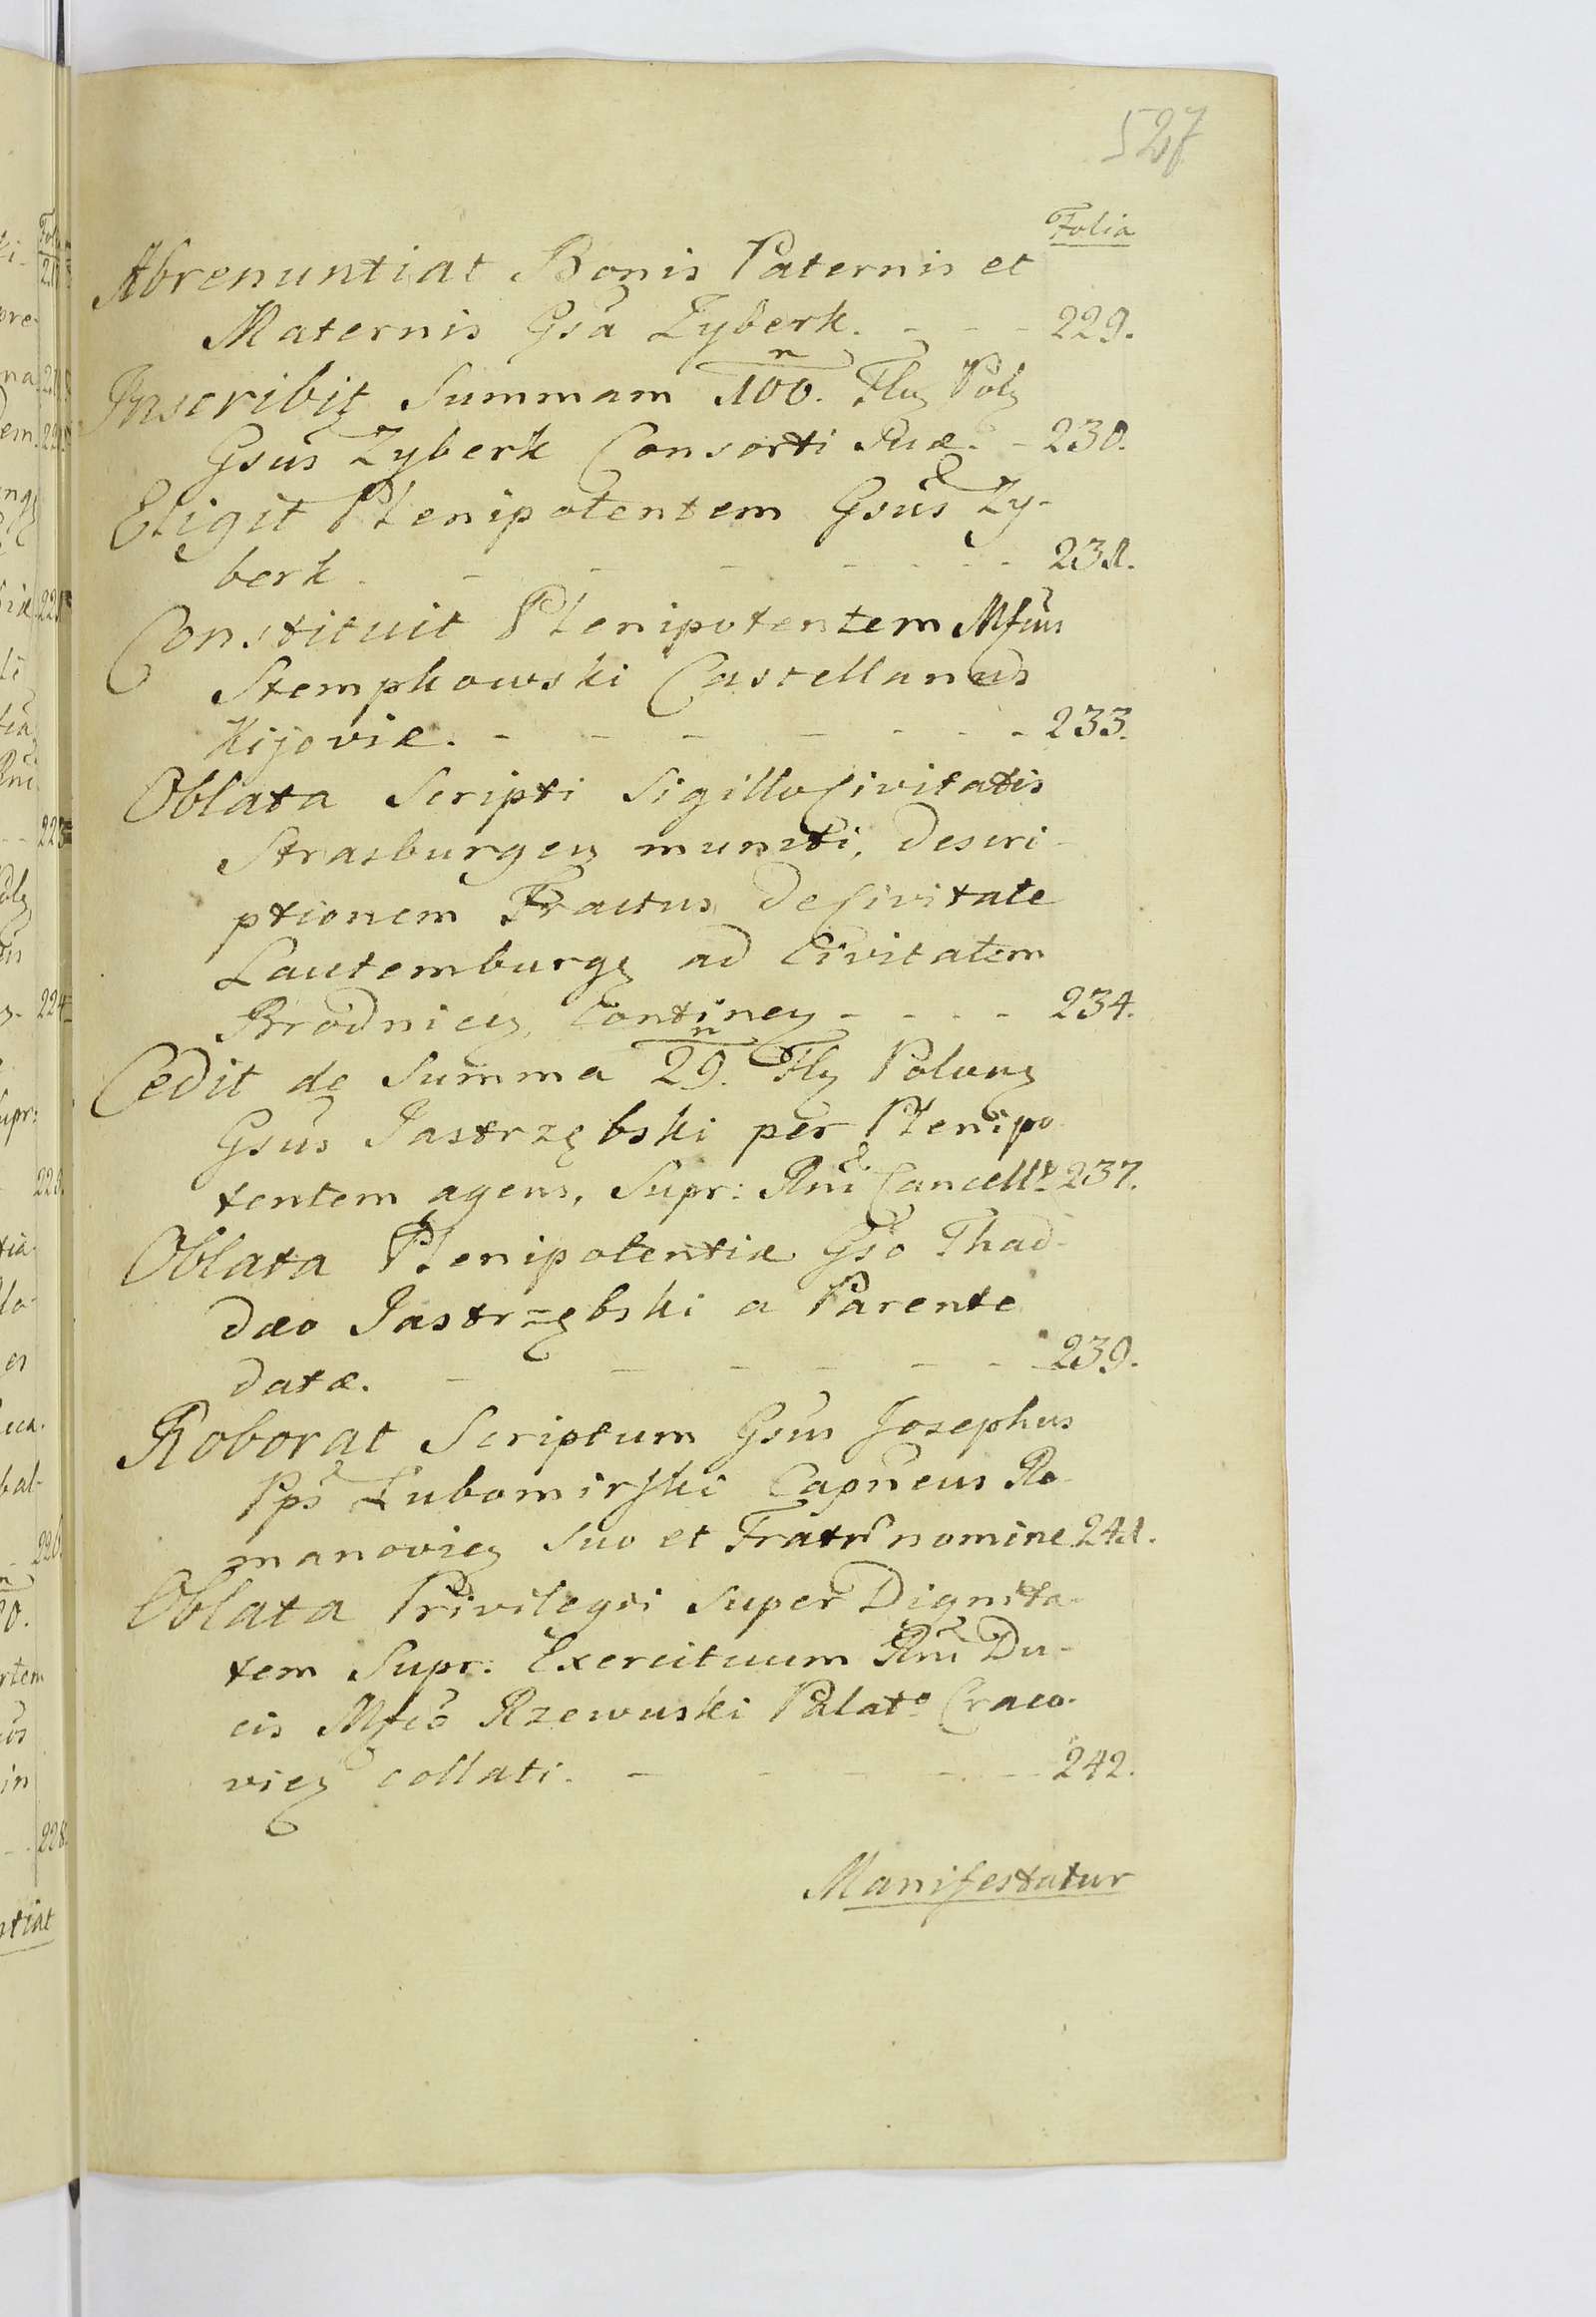 527
Folia
Abrenuntiat Bonis Paternis et
Maternis Gsa Zyberk. - - - 229.
Inscribit Summam 100. Flnz Polz
n
Gsus Zyberk Consorti suæ. - 230.
Eligit Plenipotentem Gsus Zy-
berk. - - - - - - 231.
Constituit Plenipotentem Mfcus
Stempkowski Castellanus
Kijoviæ. - - - - - - 233.
Oblata Scripti Sigillo Civitatis
Strasburgenz muniti, descri-
ptionem Tractus de Civitate
Lautemburgz ad Civitatem
Brodnicez, Continenz - - - - 234.
Cedit de Summa 29. Flz Polonz
n
Gsus Jastrzębski per Plenipo-
tentem agens, Supr: Rni Cancell: 237.
Oblata Plenipotentiæ Gso Thad-
dæo Jastrzębski a Parente
datæ. - - - - - - 239.
Roborat Scriptum Gsus Josephus
Pps Lubomirski Capneus Ro-
manoviez suo et Fratr nomine 241.
Oblata Privilegii super Dignita-
tem Supr: Exercituum Rni Du-
cis Mfco Rzewuski Palato Craco-
viez collati. - - - - - 242.
Manifestatur